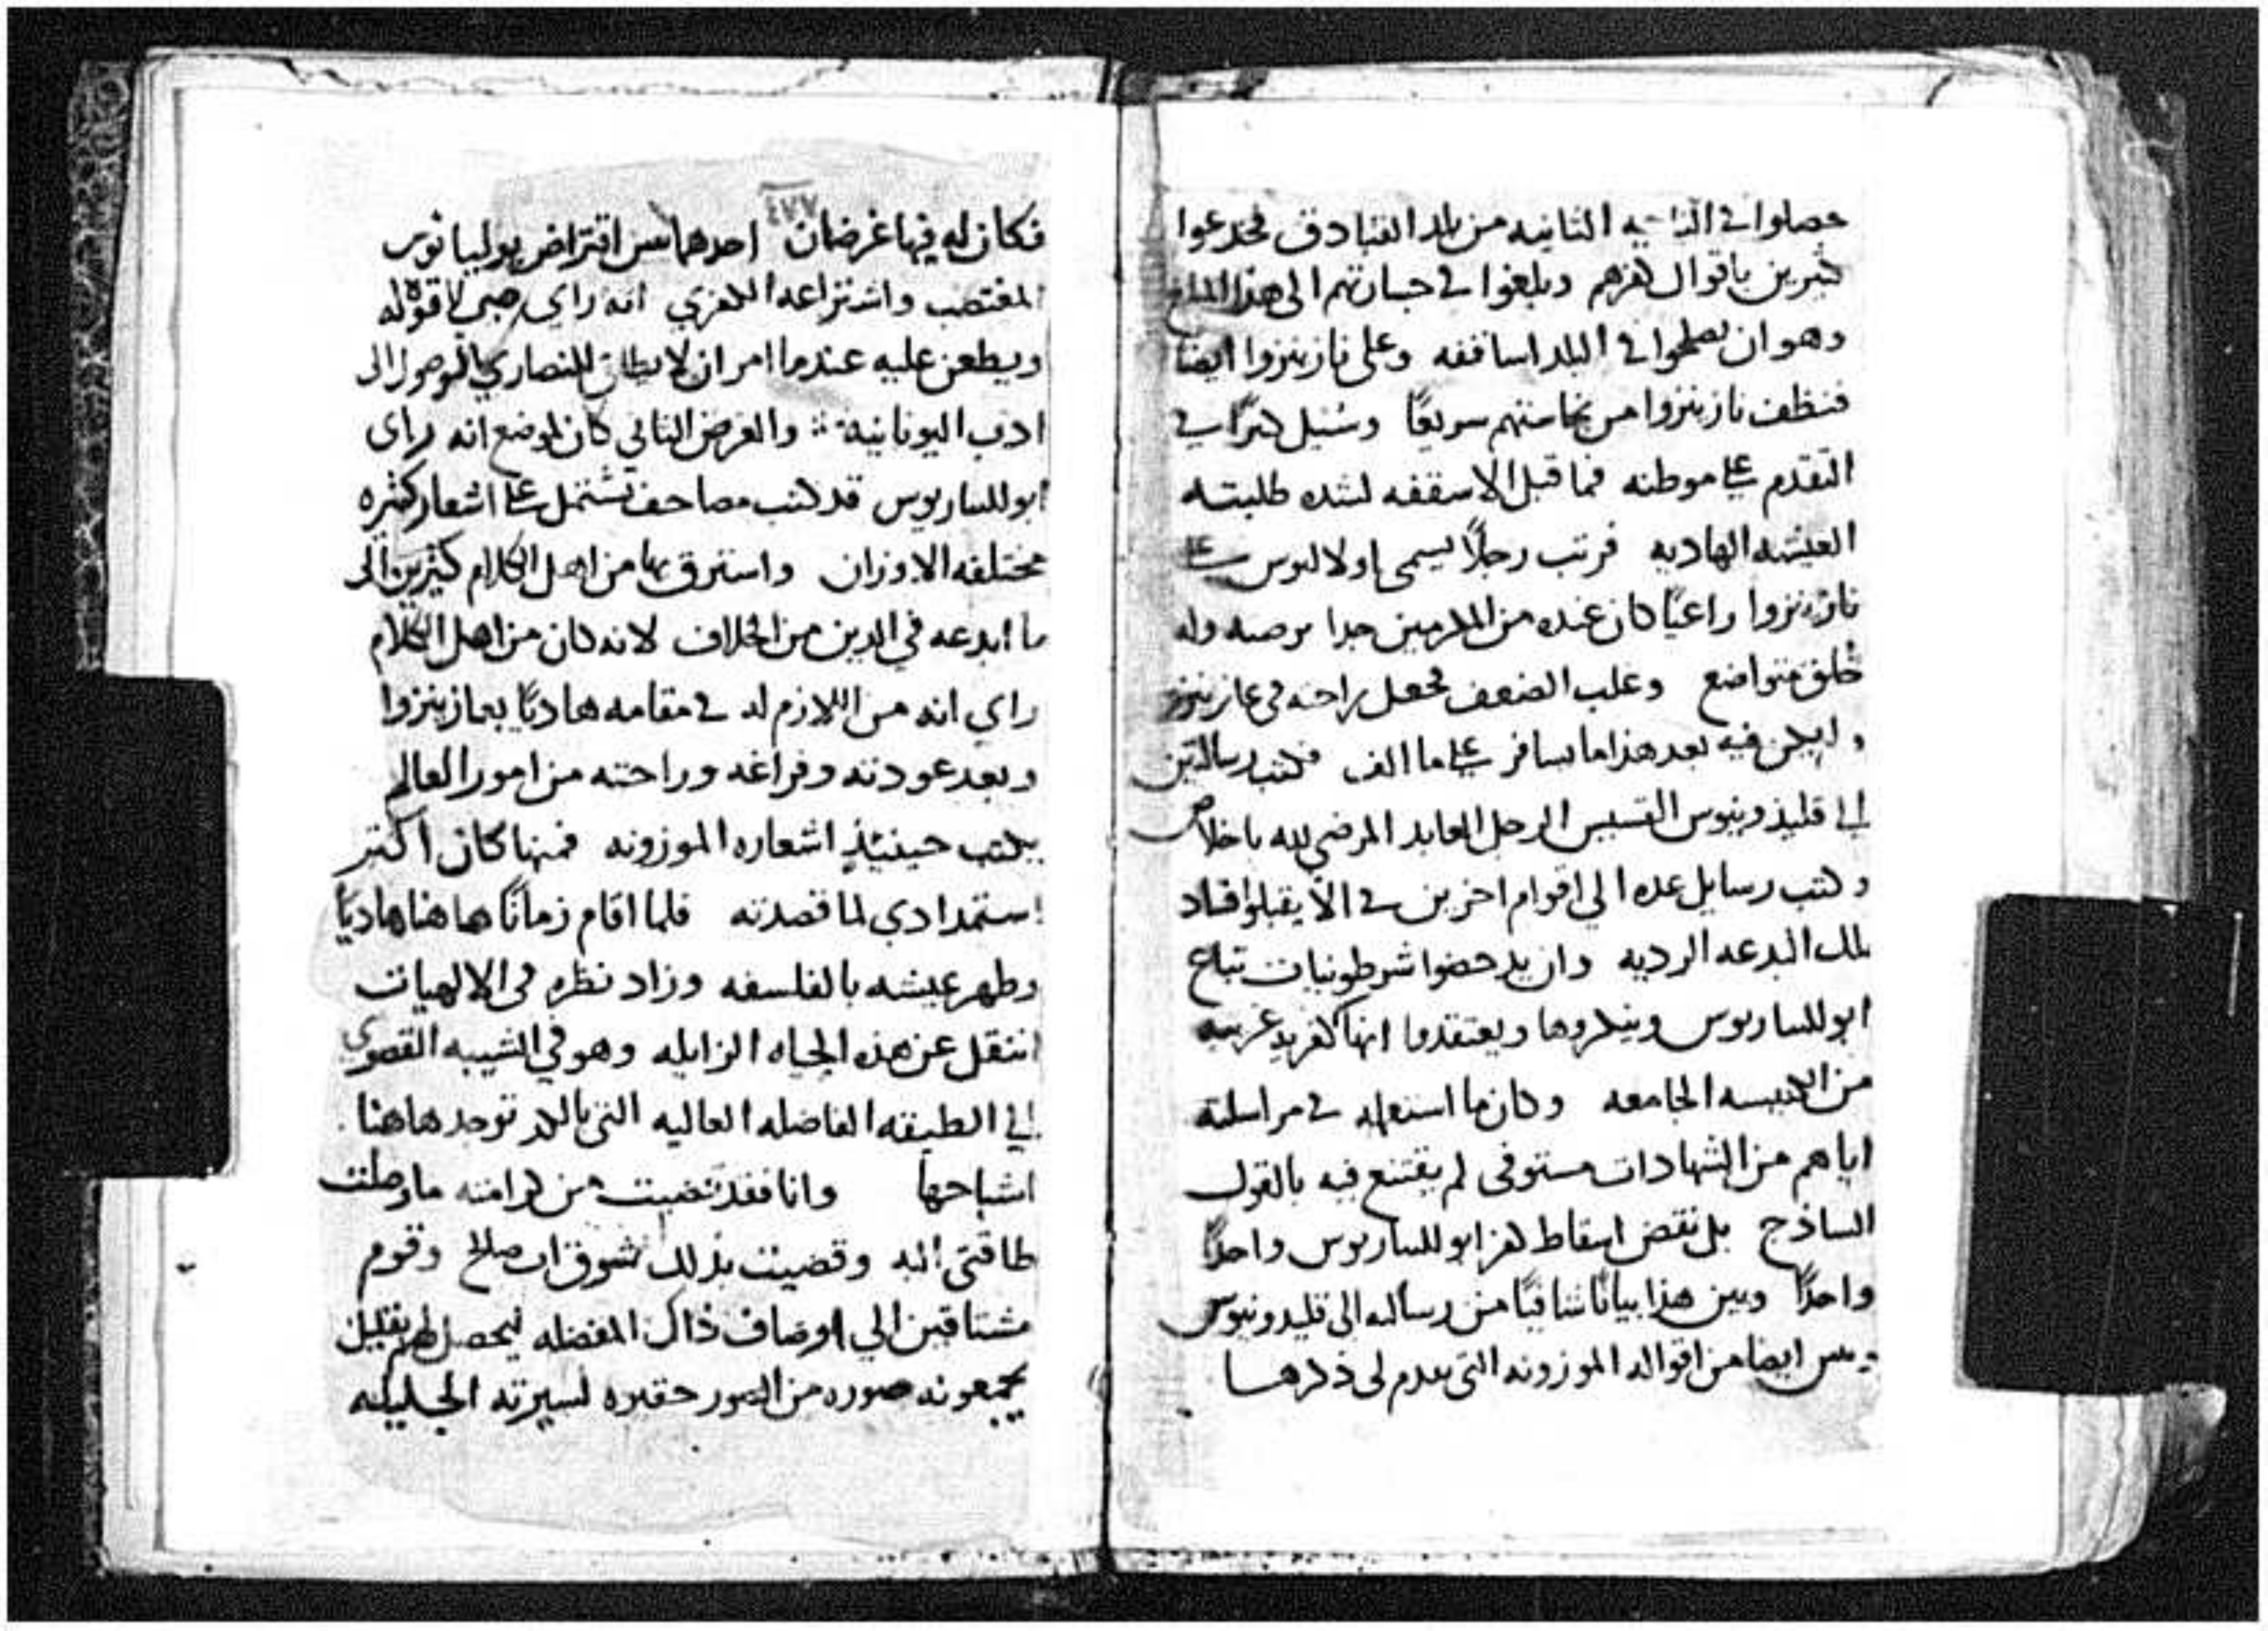 حصلوا في الناحيه الثانيه من بلد القبادق فخدعوا
كثيرين باقوال كفرهم وبلغوا في جسارتهم الى هذا المبلغ
وهو ان في البلد اساقفه وعلى نازينزوا ايضا
فنظف نازينزوا من نجاستهم سريعًا وسُيل كثيرًا في
التقدم على موطنه فما قبل الاسقفه لشده طلبته
العيشه الهاديه فرتب رجلًا يسمى اولاليوس على
نازينزوا راعيًا كان عنده من المكرمين جدا وله
خُلق متواضع وغلب الضعف فجعل راحته في
ولم يكن فيه بعد هذا ما يسافر على ما الف فكتب رسالتين
الى قليذونيوس القسيس الرجل العابد المرضي لله باخلاص
وكتب رسايل عده الي اقوام اخرين في الّا يقبلوا فساد
تلك البدعه الرديه وان يدحضوا شرطونيات تباع
ابوللناريوس وينكروها ويعتقدوا انها كفريه غريبه
من الكنيسه الجامعه وكان ما استعمله في مراسلته
اياهم من الشهادات مستوفى لم يقتنع فيه بالقول
الساذج بل نقض اسقاط كفر ابوللناريوس واحدًا
واحدًا وبين هذا بيانًا شافيًا من رسالته الى قليدونيوس
وبين ايضا من اقواله الموزونه التي تقدم لي ذكرها
٤٧٧
فكان له فيها غرضان احدهما اقتراض يوليانوس
المغتصب واشتراعه الكفري انه راي لا قوه له
ويطعن عليه عندما امر ان لا يطلق للنصاري الوصول الى
ادب اليونانية والغرض الثاني كان لوضع انه راى
ابوللناريوس قد كتب مصاحف تشتمل على اشعار كثيره
مختلفه الاوزان واسترق بها من اهل الكلام كثيرين الى
ما ابدعه في الدين من الخلاف لانه كان من اهل الكلام
راي انه من اللازم له في مقامه هاديًا بنازينزوا
وبعد عودته وفراغه وراحته من امور العالم
يكتب حينيئذٍ اشعاره الموزونه فمنها كان اكثر
استمدادي لما قصدته فلما اقام زمانًا هاهنا هاديًا
وطهر عيشه بالفلسفه وزاد نظره في الالهيات
انتقل عن هذه الحياه الزايله وهو في الشيبه القصوى
الى الطبقه الفاضله العاليه التي بالكد توجد هاهنا
اشباحها وانا فقد قضيت من كرامته ما وصلت
طاقتي اليه وقضيت بذلك تشوق اب صالح وقوم
مشتاقين الي اوصاف ذاك المفضله ليحصل لهم بقليل
يجمعونه صوره من الصور حقيره لسيرته الجليله